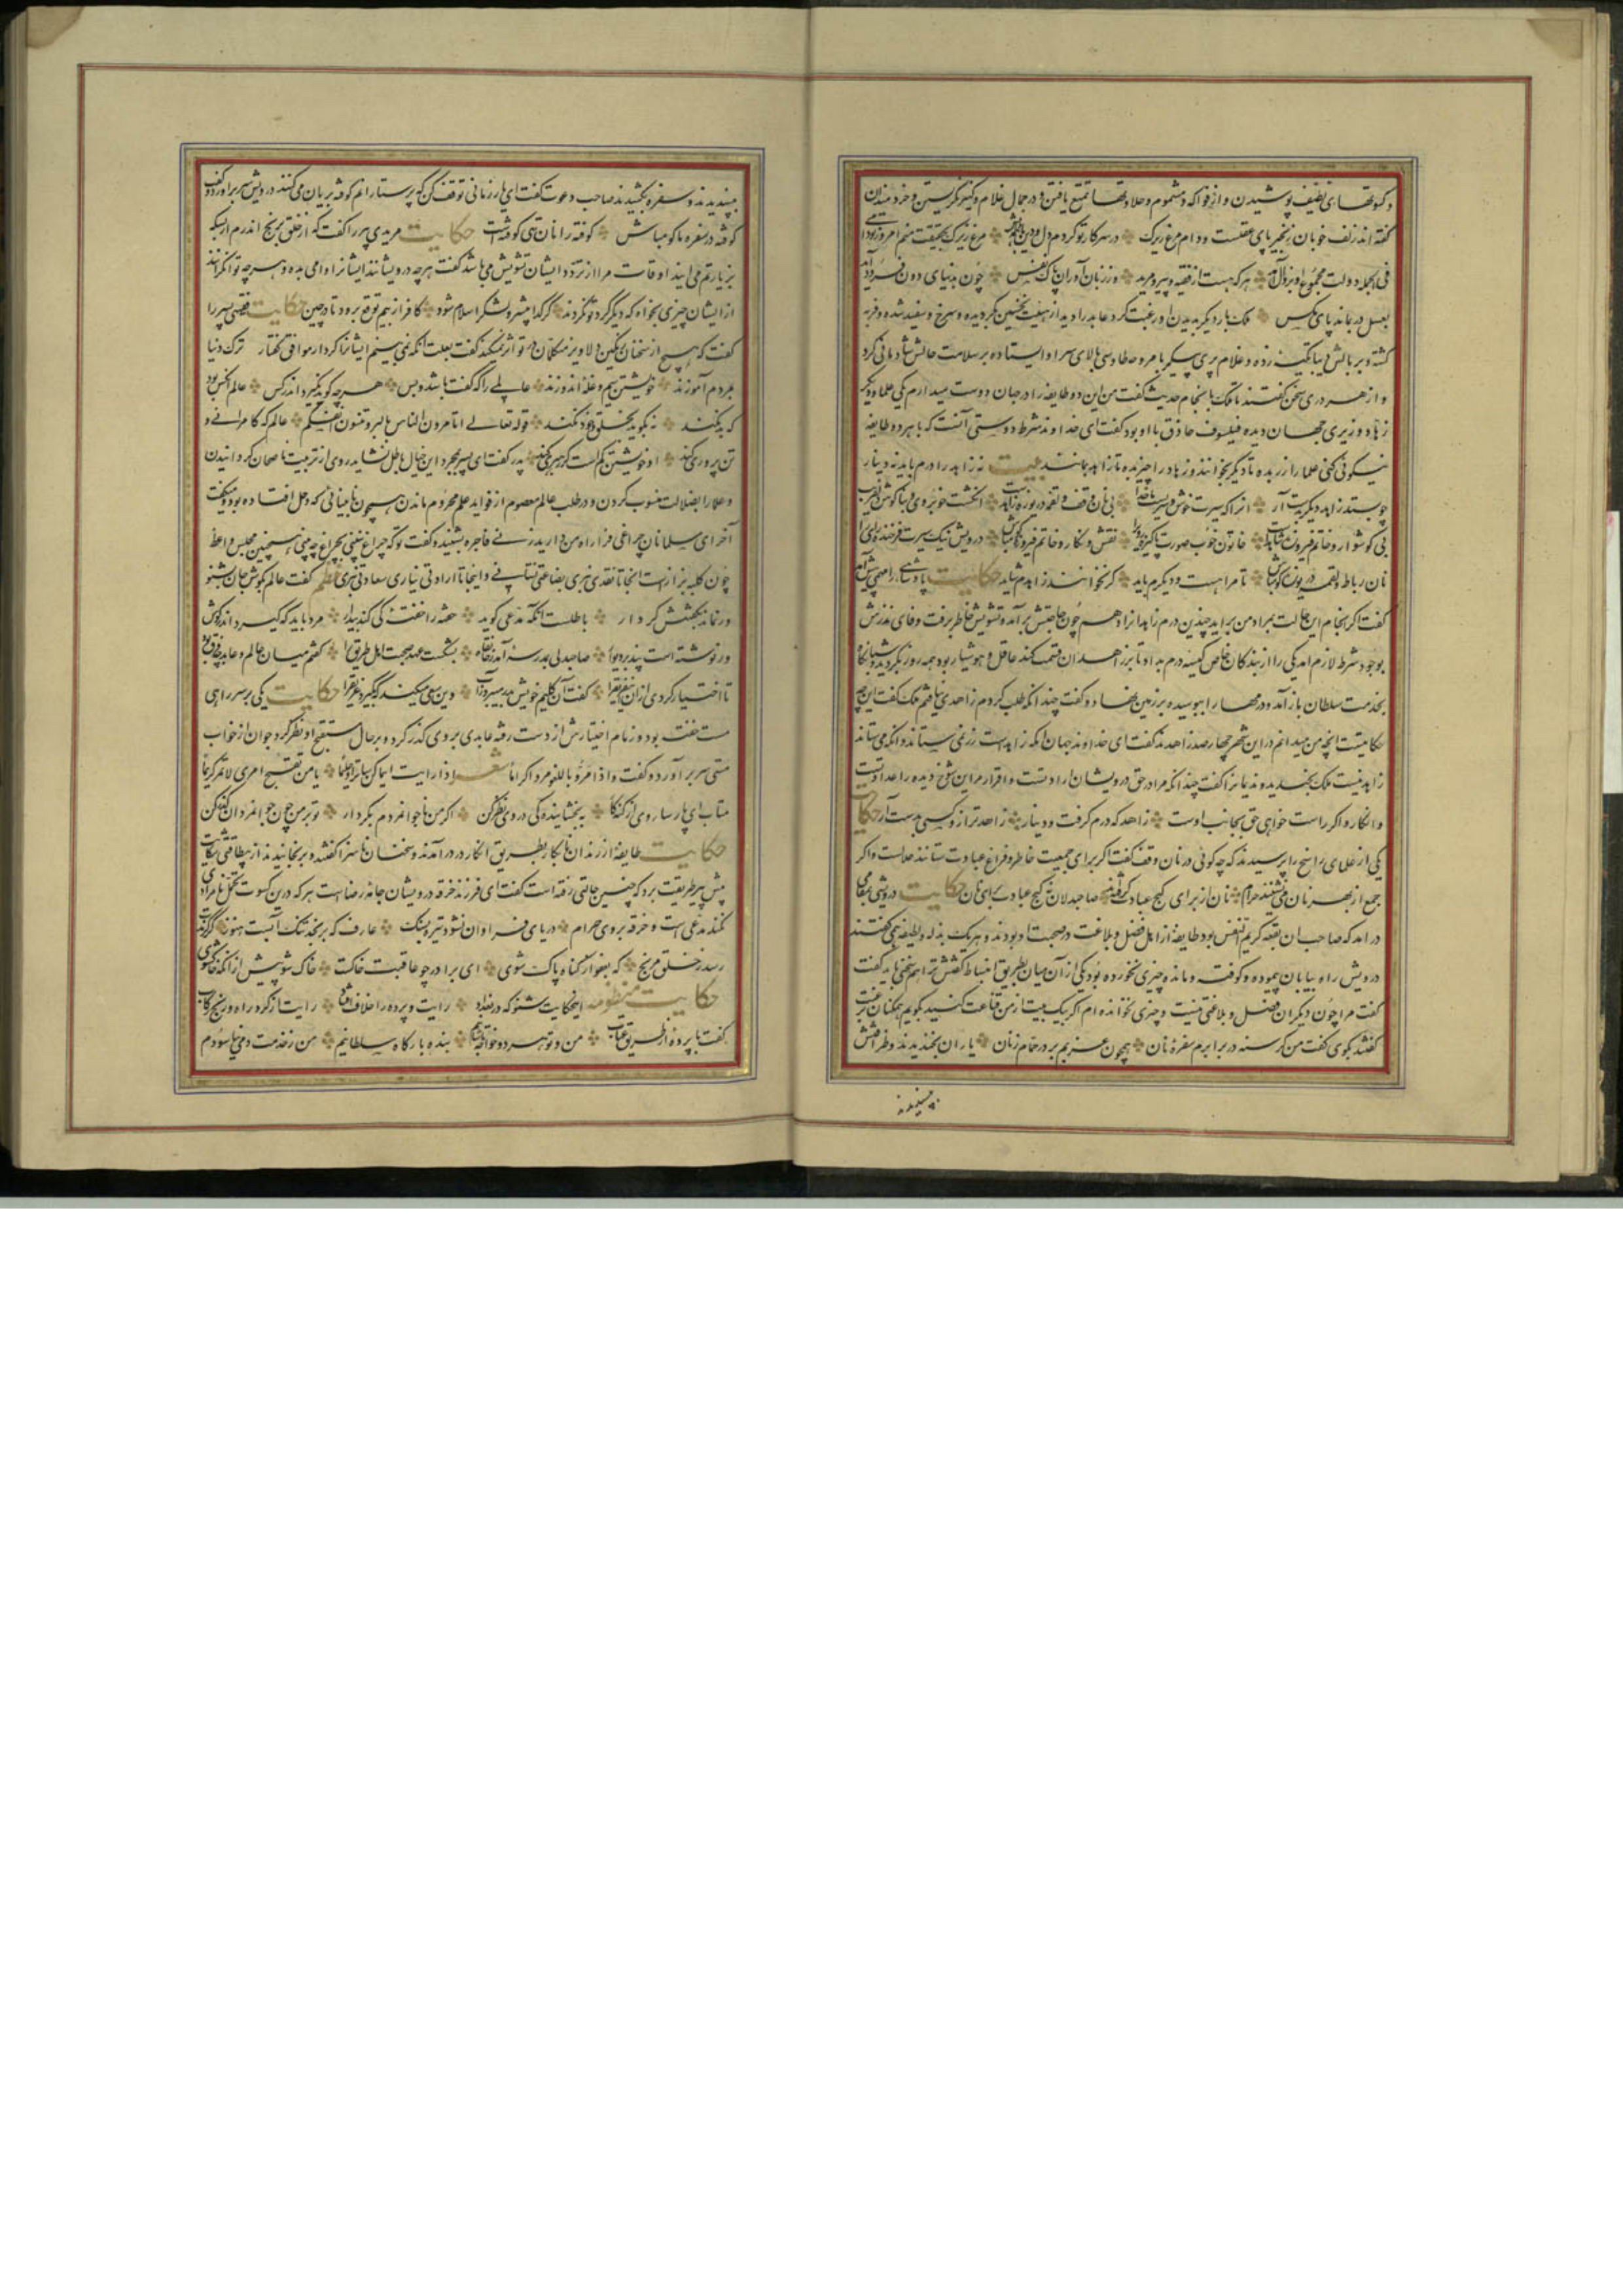 و کسوتهای نظیف پوشیدن و از فواکه و مشموم و حلاوتها تمتع یافتن و در جمال غلام و کنیز نگریستن و خردمندان
گفته اند زلف خوبان زنجیر پای عقلست و دام مرغ زیرک در سر کار تو کردم دل و دین با همه دانش مرغ زیرک بحقیقت منم امروز تو دامی
فی الجمله دولت مجموع او بزوال آمد هر که هست از فقیه و پیر و مرید وز زبان آوران پاک نفس چون بدنیای دون فرود آمد
بعسل در بماند پای مگس ملک بار دیگر بدیدن او رغبت کرد عابد را دید از هیئت نخستین بگردیده و سرخ و سفید شده و فربه
گشته و بر بالش دیبا تکیه زده و غلام پری پیکر با مروحه طاوسی بالای سر او ایستاده بر سلامت حالش شادمانی کرد
و از هر دری سخن گفتند تا ملک بانجام حدیث گفت من این دو طایفه را در جهان دوست میدارم یکی علما و دیگر
زهاد وزیری جهان دیده فیلسوف حاذق با او بود گفت ای خداوند شرط دوستی آنست که با هر دو طایفه
نیکوئی کنی علما را زر بده تا دیگر بخوانند و زهاد را چیز بده تا زاهد بمانند بیت نه زاهد را درم باید نه دینار
چو بستد زاهد دیگر بدست آر انرا که سیرت خوش و سریست با خدا بی نان وقف و لقمه دریوزه زاهد است انگشت خوبروی و بناگوش دلفریب
بی گوشوار و خاتم فیروزه شاهدست خاتون خوب صورت پاکیزه روی را نقش و نگار و خاتم فیروزه گو مباش درویش نیک سیرت فرخنده رای را
نان رباط و لقمه دریوزه گو مباش تا مرا هست و دیگرم باید گر نخوانند زاهدم شاید حکایت پادشاهی را مهمی پیش آمد
گفت اگر انجام این حالت بمراد من براید چندین درم زاهدانرا دهم چون حاجتش برآمد و تشویش خاطر برفت وفای نذرش
بوجود شرط لازم امد یکی را از بندگان خاص کیسه درم بداد تا بزاهدان قسمت کند عاقل و هوشیار بود همه روز بگردید و شبانگاه
بخدمت سلطان باز آمد و درمها را ببوسید و بر زمین نهاد و گفت چندانکه طلب کردم زاهدی نیافتم ملک گفت این چه
حکایتست انچه من میدانم در این شهر چهار صد زاهدند گفت ای خداوند جهان انکه زاهدست زر نمی ستاند و انکه می ستاند
زاهد نیست ملک بخندید و ندیمانرا گفت چندانکه مرا در حق درویشان ارادتست و اقرار مر این شوخ دیده را عداوتست
و انکار و اگر راست خواهی حق بجانب اوست زاهد که درم گرفت و دینار زاهدتر ازو کسی بدست آر حکایت
یکی از علمای راسخ را پرسیدند که چه گوئی در نان وقف گفت اگر برای جمعیت خاطر و فراغ عبادت ستانند حلالست و اگر
جمع از بهر نان می نشینند حرام نان از برای کنج عبادت گرفته اند صاحبدلان نه کنج عبادت برای نان حکایت درویشی بمقامی
درامد که صاحب ان بقعه کریم النفس بود طایفه از اهل فضل و بلاغت در صحبت او بودند و هر یک بذله و لطیفه همی گفتند
درویش راه بیابان پیموده و کوفته و مانده و چیزی نخورده بود یکی از آن میان بطریق انبساط گفتش ترا هم سخنی باید گفت
گفت مرا چون دیگران فضل و بلاغتی نیست و چیزی نخوانده ام اگر بیک بیت از من قناعت کنید بگویم همگنان برغبت
گفتند بگوی گفت من گرسنه در برابرم سفره نان همچون عزبم بر در حمام زنان یاران بخندیدند و ظرافتش
بپسندیدند
بپسندیدند و سفره بکشیدند صاحب دعوت گفت ای یار زمانی توقف کن که پرستارانم کوفته بریان می کنند درویش سر براورد و گفت
کوفته در سفره ما گو مباش کوفته را نان تهی کوفته است حکایت مریدی پیر را گفت که از خلق برنج اندرم از بسکه
بزیارتم می ایند اوقات مرا از تردد ایشان تشویش می باشد گفت هر چه درویشانند ایشانرا وامی بده و هر چه توانگرانند
از ایشان چیزی بخواه که دیگر گرد تو نگردند گر گدا پیشرو لشکر اسلام شود کافر از بیم توقع برود تا در چین حکایت فقیهی پسر را
گفت که هیچ از سخنان رنگین دلاویز متکلمان در تو اثر نمیکند گفت بعلت انکه نمی بینم ایشانرا کردار موافق گفتار ترک دنیا
بمردم آموزند خویشتن سیم و غله اندوزند عالمی را که گفت باشد و بس هر چه گوید نگیرد اندر کس عالم انکس بود
که بد نکند نه بگوید بخلق و خود نکند قوله تعالی اتامرون الناس بالبر و تنسون انفسکم عالم که کامرانی و
تن پروری کند او خویشتن گم است کرا رهبری کند پدر گفت ای پسر بمجرد این خیال باطل نشاید روی از تربیت ناصحان گردانیدن
و علما را بضلالت منسوب کردن و در طلب عالم معصوم از فواید علم محروم ماندن همچون نابینائی که در وحل افتاده بود و میگفت
آخر ای مسلمانان چراغی فرا راه من دارید زنی فاجره بشنید و گفت تو که چراغ نبینی بچراغ چه بینی همچنین مجلس واعظ
چون کلبه بزازست انجا تا نقدی ندهی بضاعتی نستانی و اینجا تا ارادتی نیاری سعادتی نبری نظم گفت عالم بگوش جان بشنو
ور نماند بگفتنش کردار باطلست انکه مدعی گوید خفته را خفته کی کند بیدار مرد باید که گیرد اندر گوش
ور نوشته است پند بر دیوار صاحبدلی بمدرسه آمد ز خانقاه بشکست عهد صحبت اهل طریق را گفتم میان عالم و عابد چه فرق بود
تا اختیار کردی از ان این فریق را گفت آن گلیم خویش بدر میبرد ز آب وین سعی میکند که بگیرد غریق را حکایت یکی بر سر راهی
مست خفته بود و زمام اختیارش از دست رفته عابدی بر وی گذر کرد و بر حال مستقبح او نظر کرد جوان از خواب
مستی سر براورد و گفت و اذا مروا باللغو مروا کراما شعر اذا رایت اثیما کن ساترا و حلیما یا من تقبح امری لم لا تمر کریما
متاب ای پارسا روی از گنه کار ببخشایندگی در وی نظر کن اگر من ناجوانمردم بکردار تو بر من چون جوانمردان گذر کن
حکایت طایفه از رندان بانکار بطریق انکار در درویشی درآمدند و سخنان ناسزا گفتند و برنجانیدند از بیطاقتی شکایت
پیش پیر طریقت برد که چنین حالتی رفته است گفت ای فرزند خرقه درویشان جامه رضاست هر که درین کسوت تحمل نامرادی
نکند مدعی است و خرقه بروی حرام دریای فراوان نشود تیره بسنگ عارف که برنجد تنک آبست هنوز گر گزندت
رسد ز خلق مرنج که بعفو از گناه پاک شوی ای برادر چو عاقبت خاکست خاک شو پیش از انکه خاک شوی
حکایت منظومه اینحکایت شنو که در بغداد رایت و پرده را خلاف افتاد رایت از گرد راه و رنج رکاب
گفت با پرده از طریق عتاب من و تو هر دو خواجه تاشانیم بنده بارگاه سلطانیم من ز خدمت دمی نیاسودم